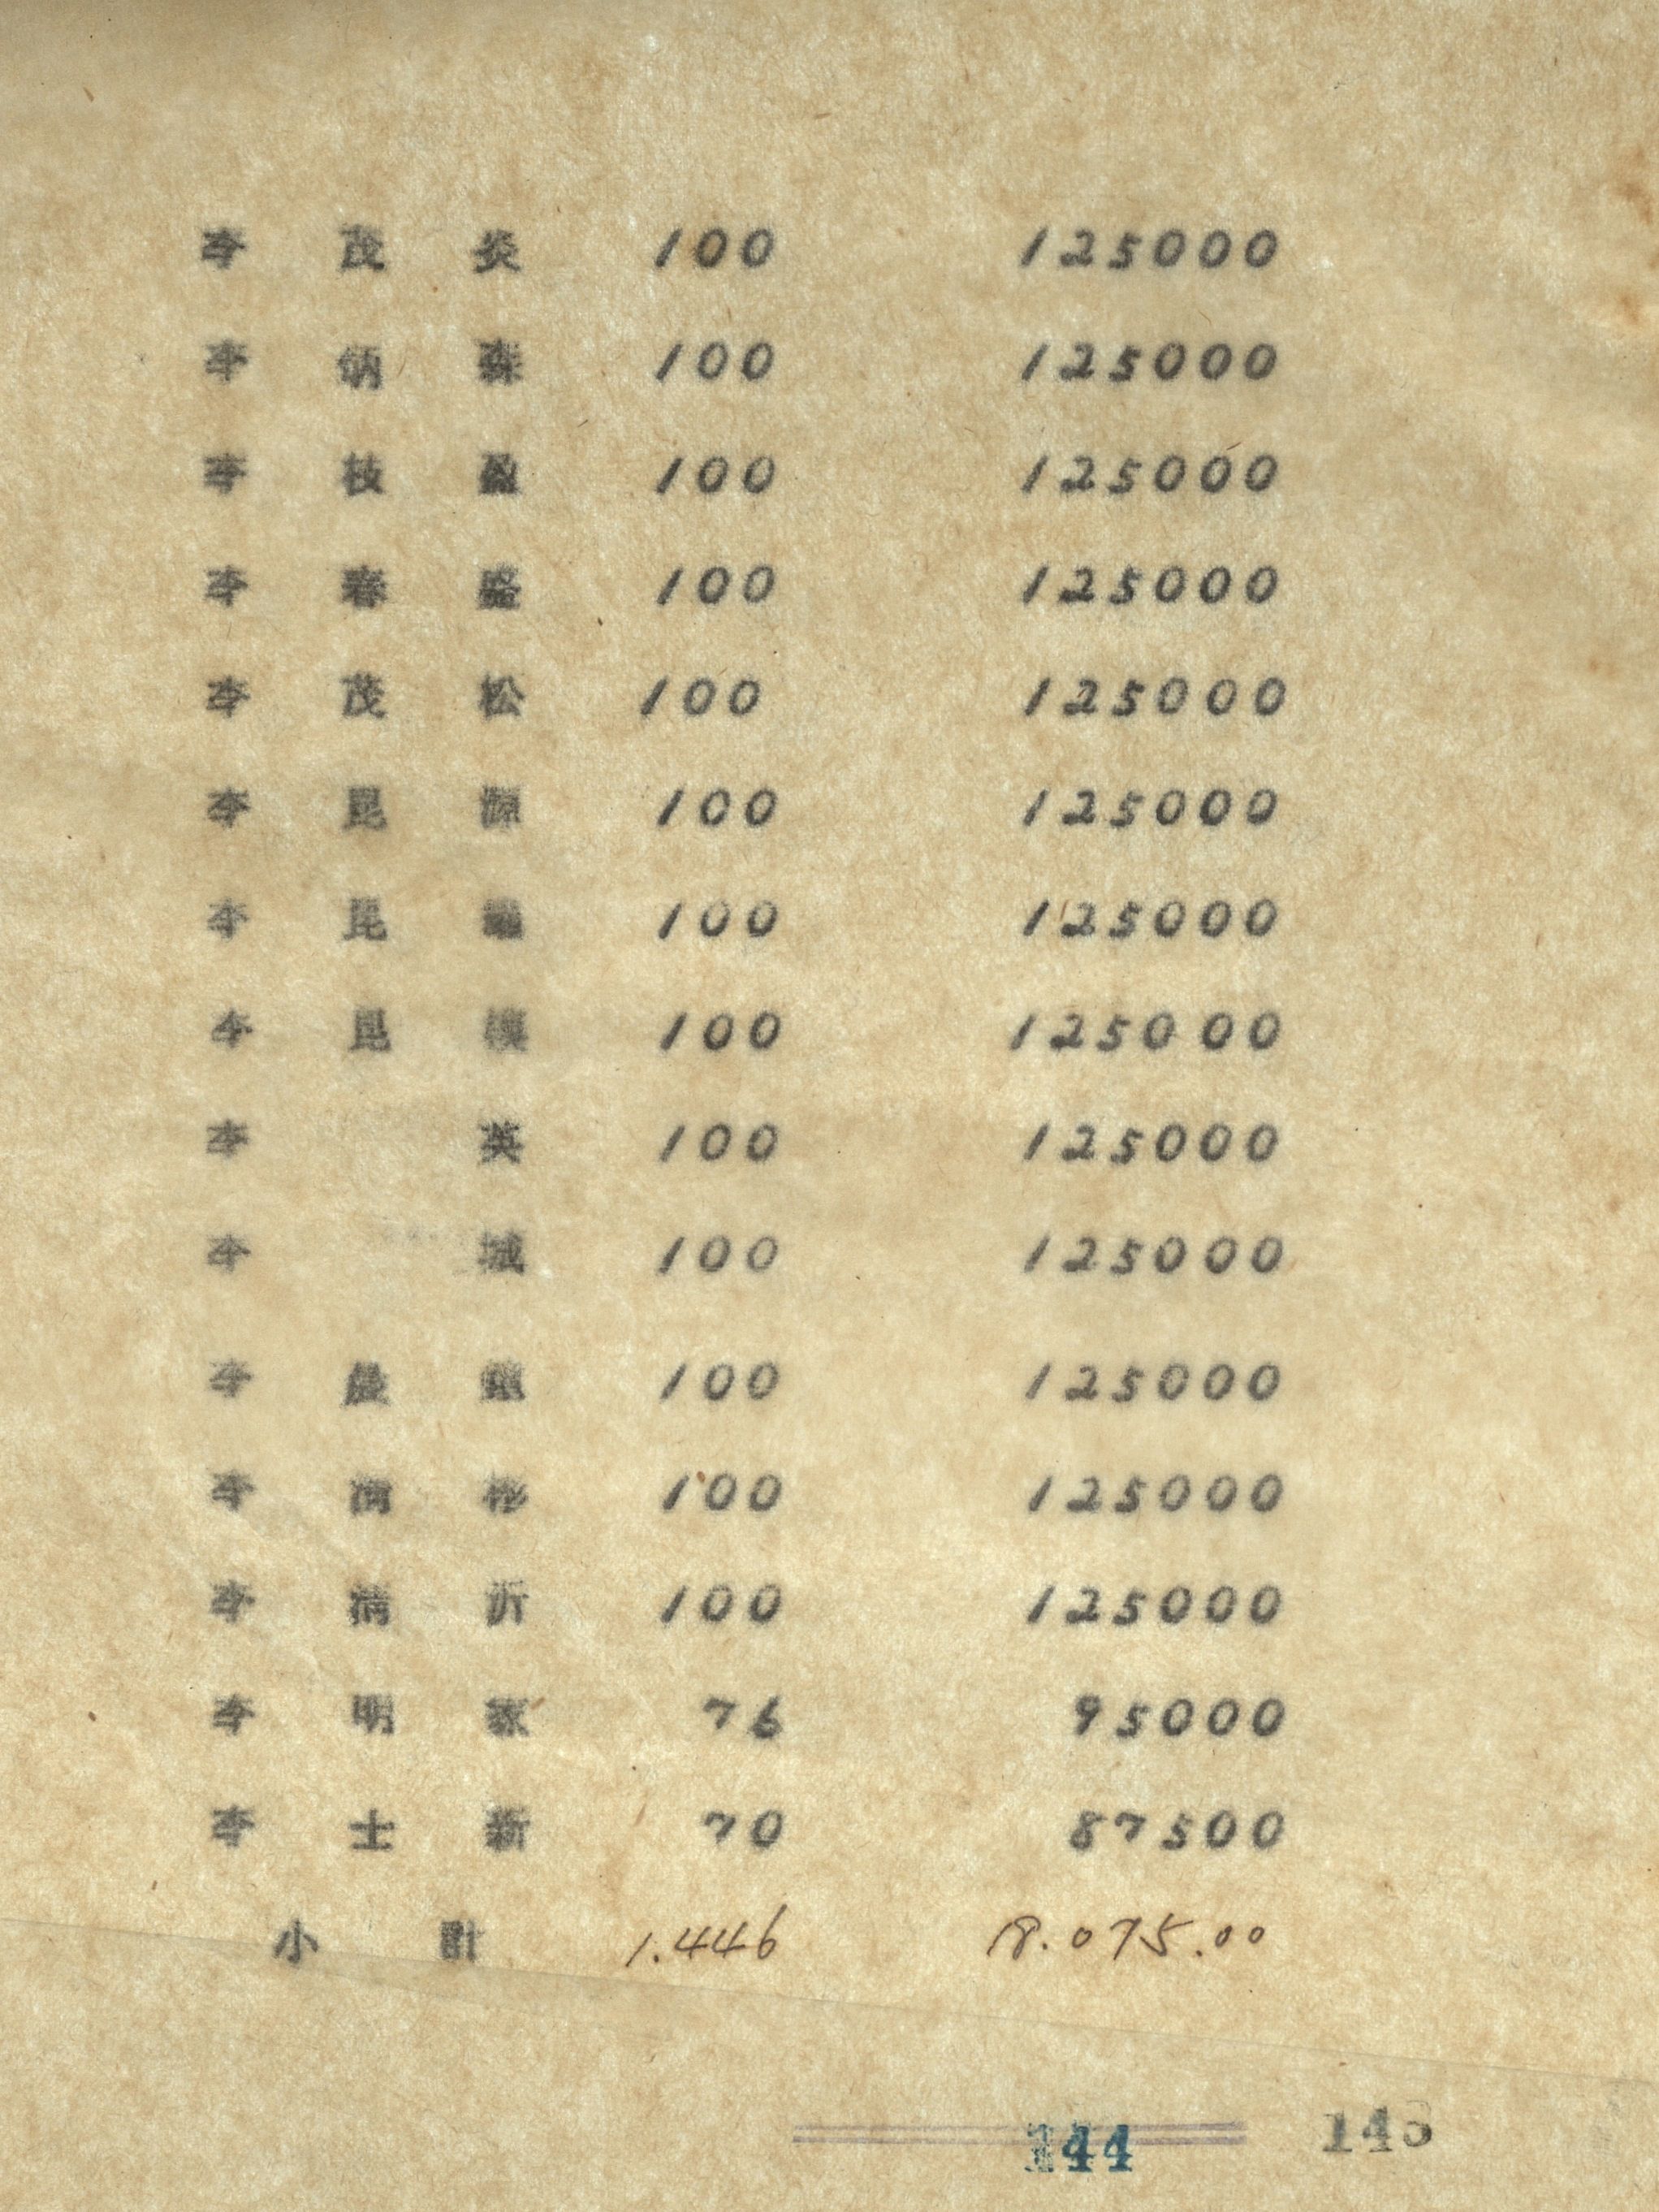 李 茂 炎 100 125000
李 炳 森 100 125000
李 枝 盈 100 125000
李 春 盛 100 125000
李 茂 松 100 125000
李 昆 源 100 125000
李 昆 100 125000
李 昆 100 125000
李 英 100 125000
李 城 100 125000
李 100 125000
李 100 125000
李 100 125000
李 明 家 76 95000
李 士 新 70 87500
小 計 1.446 18.075.00
144 143